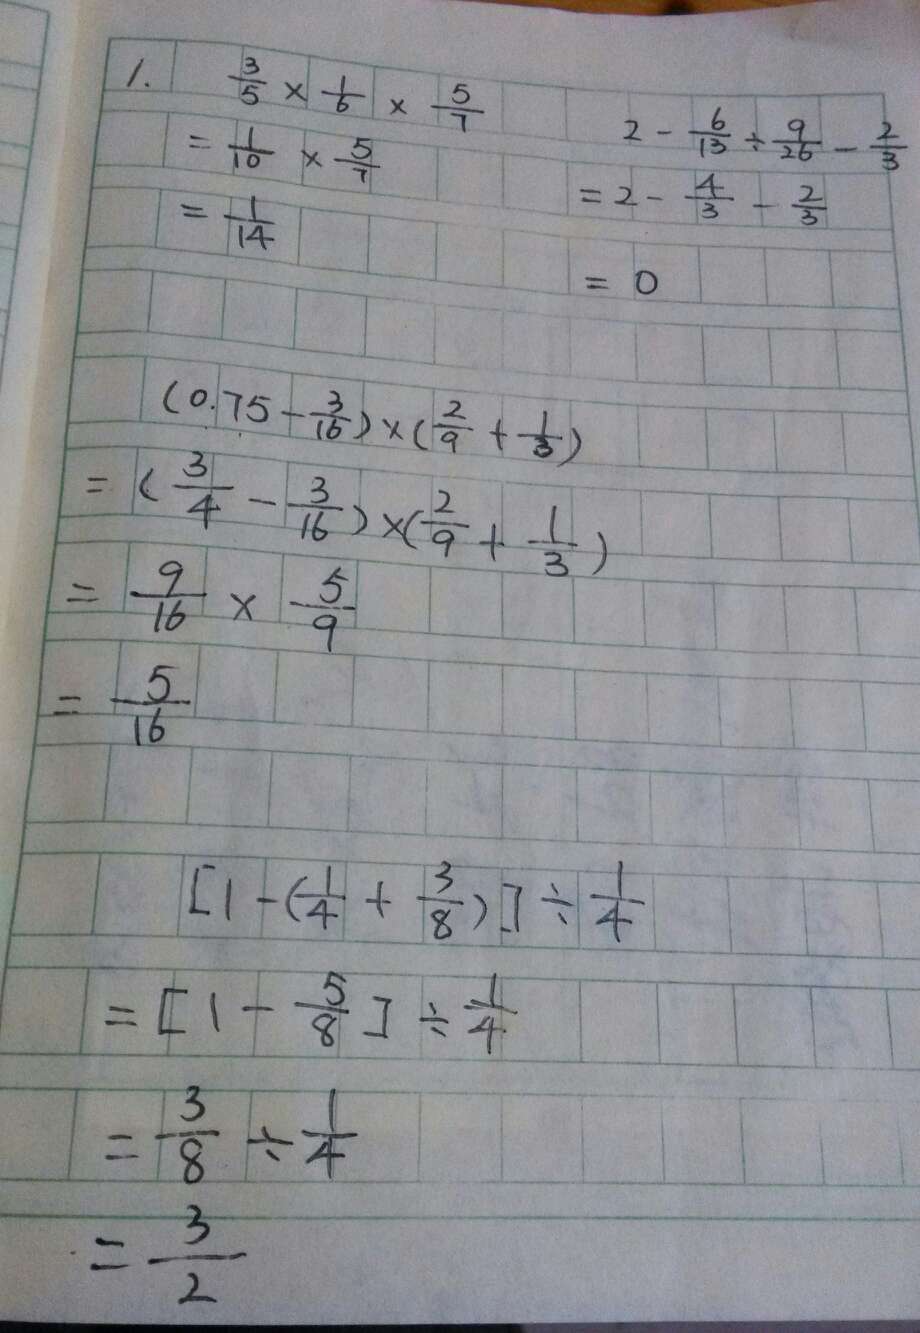 1. 3/5 × 1/6 × 5/7
= 1/10 × 5/7
= 1/14
2 - 6/13 ÷ 9/26 - 2/3
= 2 - 4/3 - 2/3
= 0
(0.75 - 3/16) × (2/9 + 1/3)
= (3/4 - 3/16) × (2/9 + 1/3)
= 9/16 × 5/9
= 5/16
[1 - (1/4 + 3/8)] ÷ 1/4
= [1 - 5/8] ÷ 1/4
= 3/8 ÷ 1/4
= 3/2